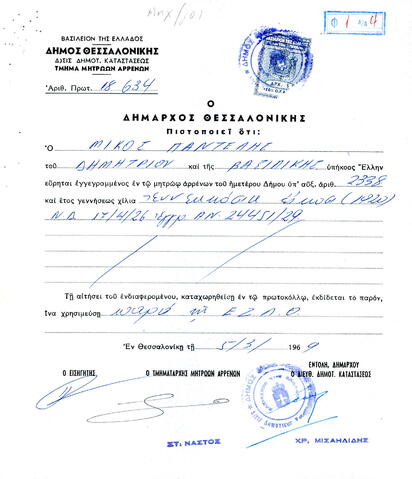 ΒΑΣΙΛΕΙΟΝ ΤΗΣ ΕΛΛΑΔΟΣ
ΔΗΜΟΣ ΘΕΣΣΑΛΟΝΙΚΗΣ
Δ)ΣΙΣ ΔΗΜΟΤ. ΚΑΤΑΣΤΑΣΕΩΣ
ΤΜΗΜΑ ΜΗΤΡΩΩΝ ΑΡΡΕΝΩΝ
Ἀριθ. Πρωτ. 18.634
Ο
ΔΗΜΑΡΧΟΣ ΘΕΣΣΑΛΟΝΙΚΗΣ
Πιστοποιεῖ ὅτι:
Ὁ ΜΙΚΟΣ ΠΑΝΤΕΛΗΣ
τοῦ ΔΗΜΗΤΡΙΟΥ καὶ τῆς ΒΑΣΙΛΙΚΗΣ, ὑπήκοος Ἕλλην
εὕρηται ἐγγεγραμμένος ἐν τῷ μητρώῳ ἀρρένων τοῦ ἡμετέρου Δήμου ὑπ' αὔξ. ἀριθ. 2338
καὶ ἔτος γεννήσεως χίλια ἐννεακόσια εἴκοσι (1920)
Ν.Δ. 17/4/26 ἐγγρ. ΑΝ. 24451/29
Τῇ αἰτήσει τοῦ ἐνδιαφερομένου, καταχωρηθείσῃ ἐν τῷ πρωτοκόλλῳ, ἐκδίδεται τὸ παρόν,
ἵνα χρησιμεύσῃ παρὰ τῇ Ε.Σ.Λ.Θ.
Ἐν Θεσσαλονίκῃ τῇ 5/3/ 1969
Ο ΕΙΣΗΓΗΤΗΣ, Ο ΤΜΗΜΑΤΑΡΧΗΣ ΜΗΤΡΩΩΝ ΑΡΡΕΝΩΝ
ΕΝΤΟΛῌ ΔΗΜΑΡΧΟΥ
Ο ΔΙΕΥΘ. ΔΗΜΟΤ. ΚΑΤΑΣΤΑΣΕΩΣ
ΣΤ. ΝΑΣΤΟΣ
ΧΡ. ΜΙΣΑΗΛΙΔΗΣ